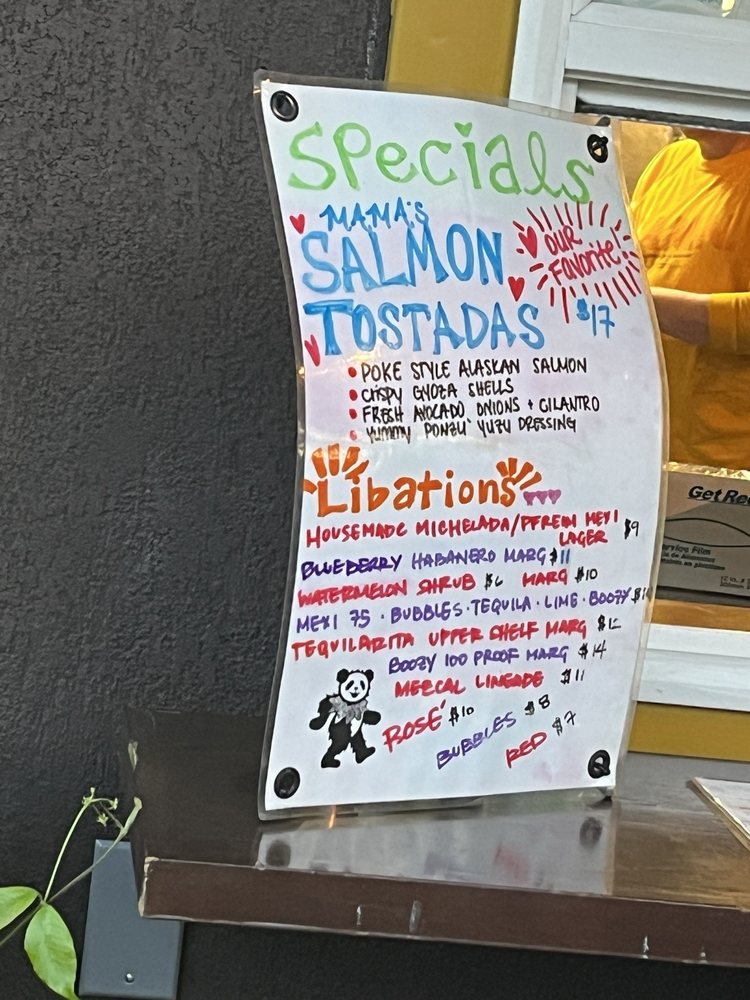 Specials
MAMA'S
SALMON
TOSTADAS
OUR
Favorite!
$17
• POKE STYLE ALASKAN SALMON
• CRISPY GYOZA SHELLS
• FRESH AVOCADO ONIONS + CILANTRO
• YUMMY PONZU YUZU DRESSING
Libations
HOUSEMADE MICHELADA/ MEXI
LAGER $9
BLUEBERRY HABANERO MARG $11
WATERMELON SHRUB $6 MARG $10
MEXI 75 · BUBBLES · TEQUILA · LIME · BOOZY
TEQUILARITA UPPER SHELF MARG
BOOZY 100 PROOF MARG $14
MEZCAL LINEADE $11
ROSÉ $10
BUBBLES $8
RED $7
Get Re
ervice Film